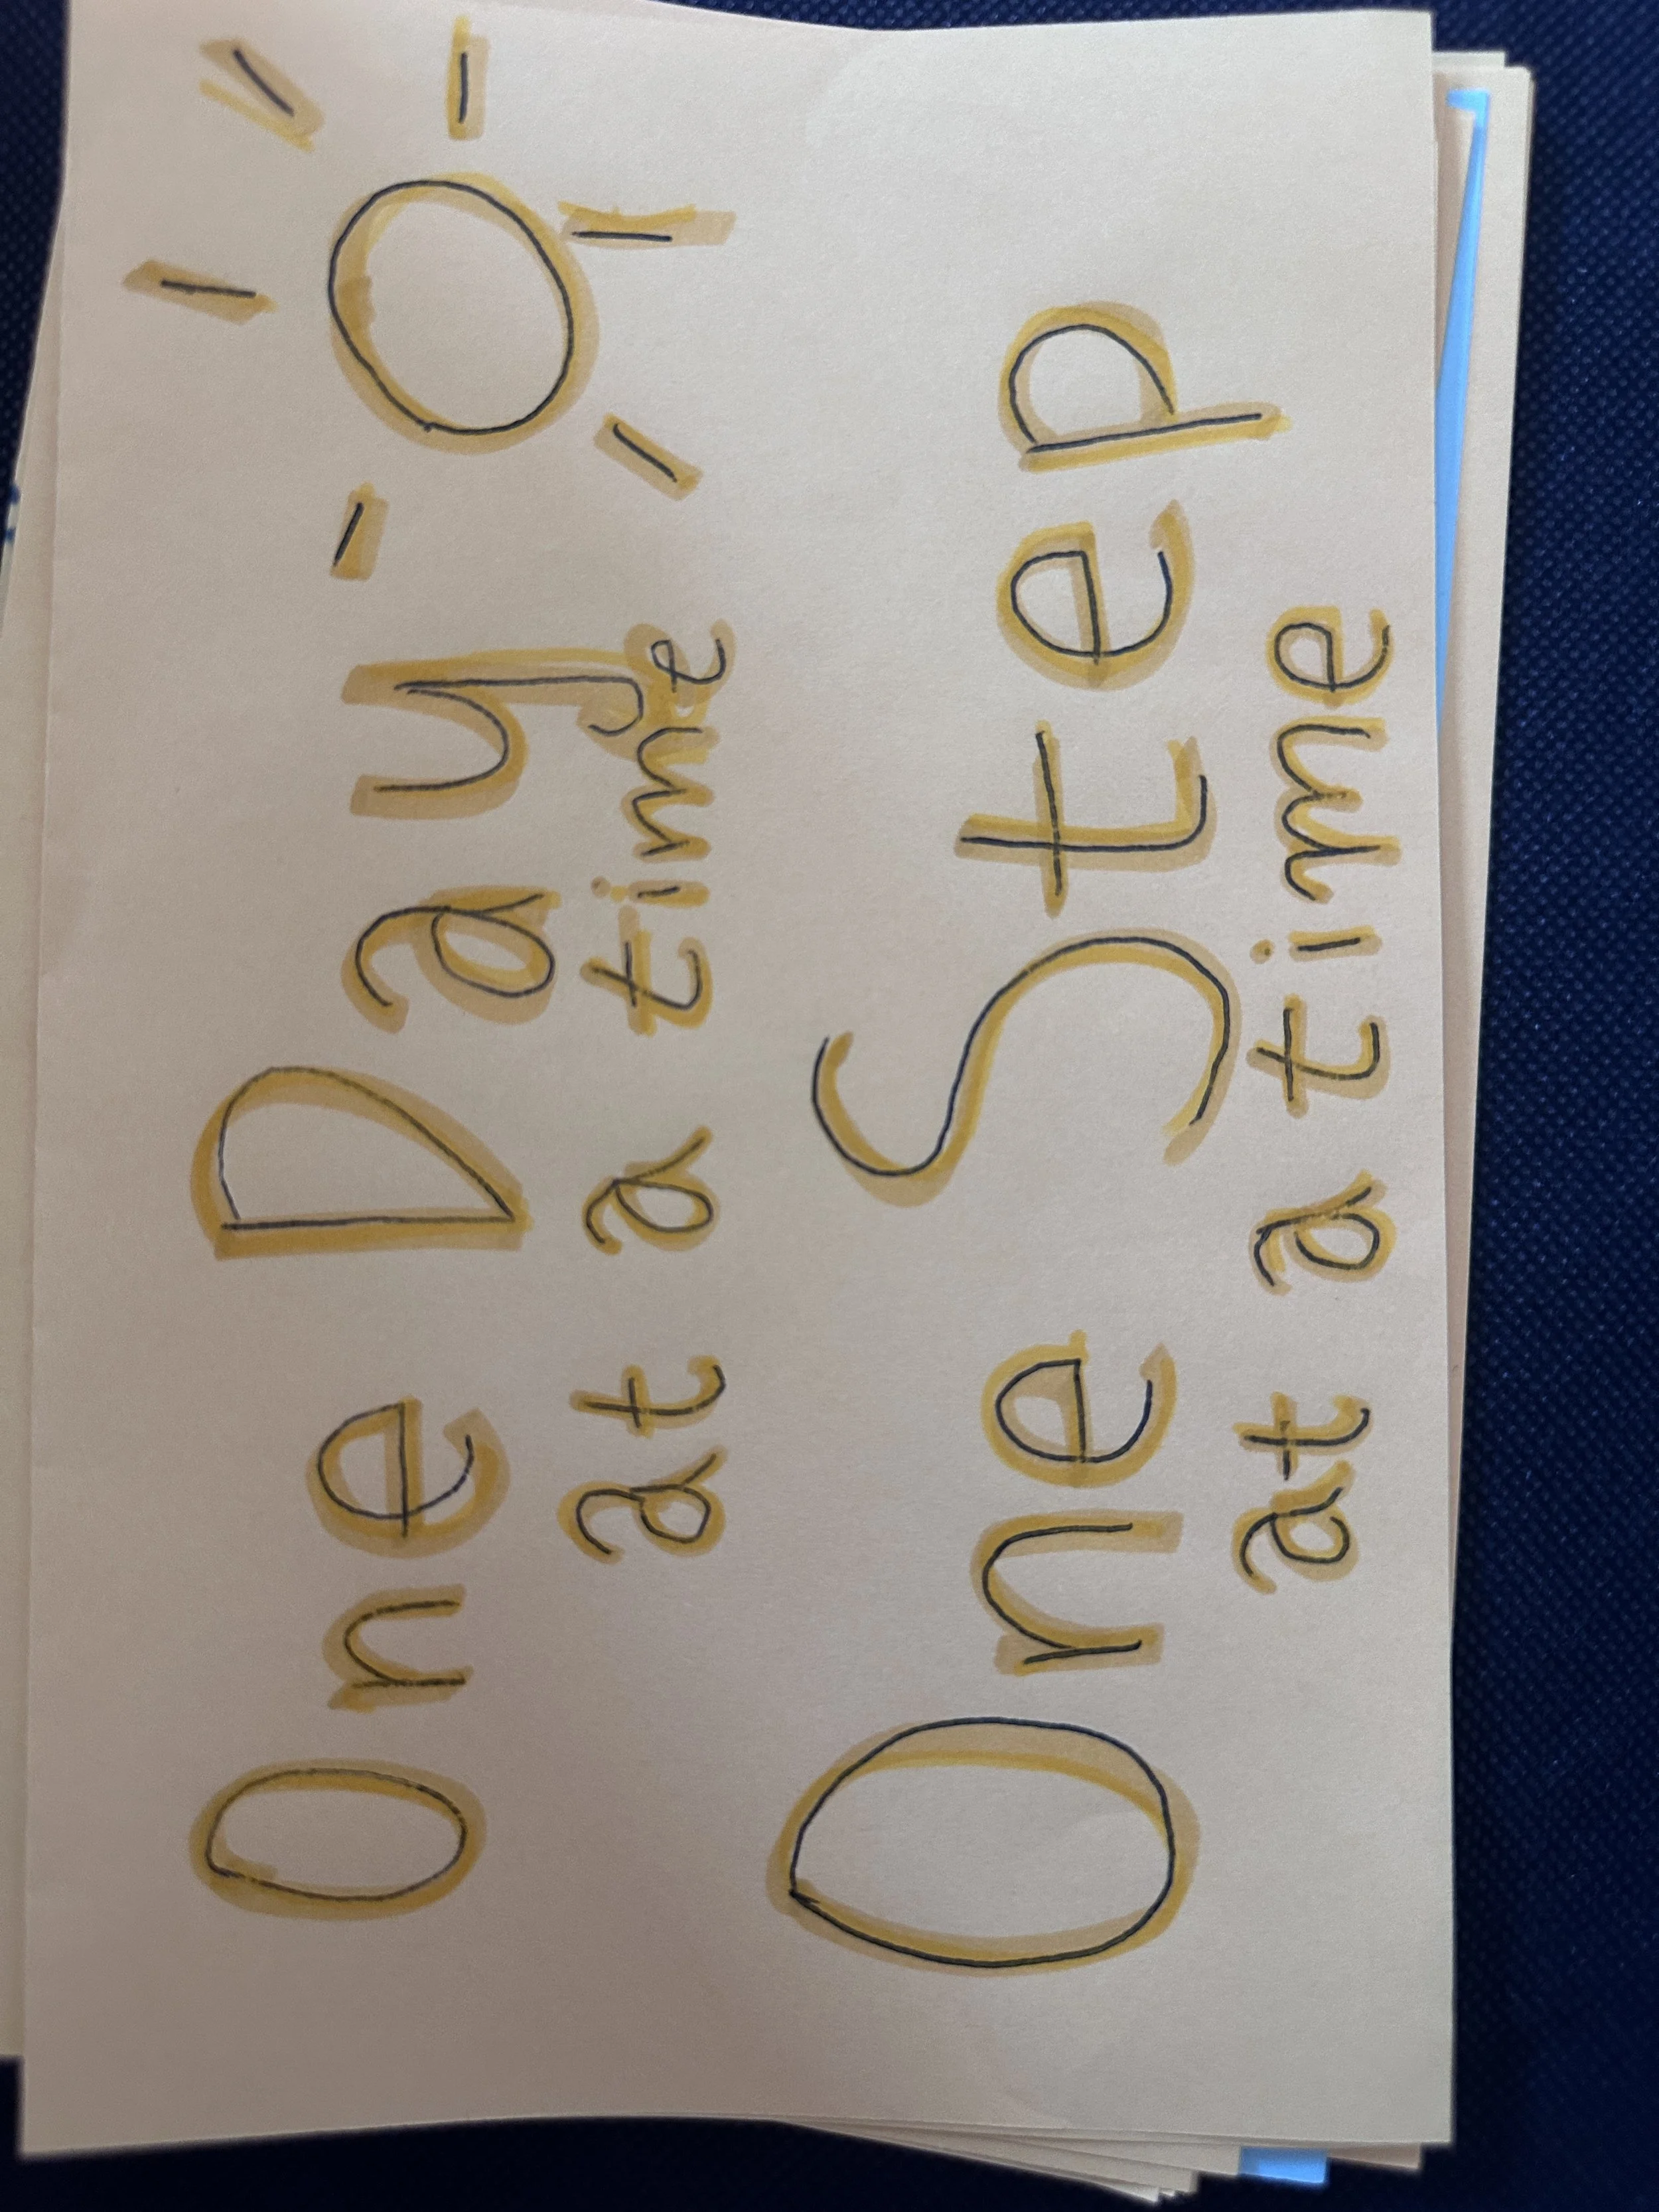 One Day
at a time
One Step
at a time